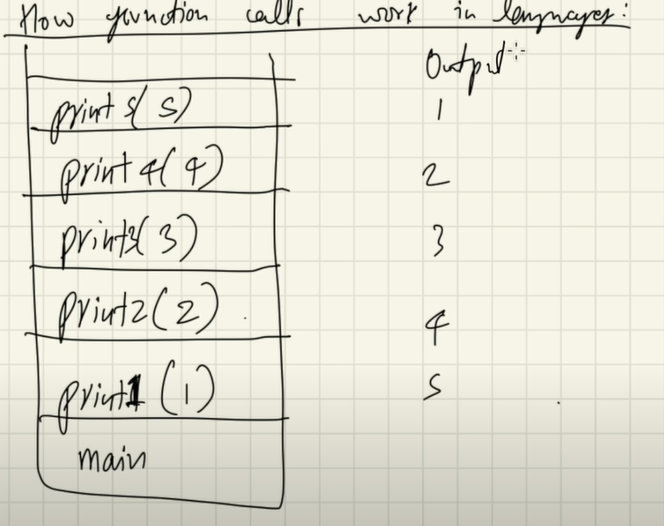 How function calls work in languages:
Output:
print5(5) 1
print4(4) 2
print3(3) 3
print2(2) 4
print1(1) 5
main